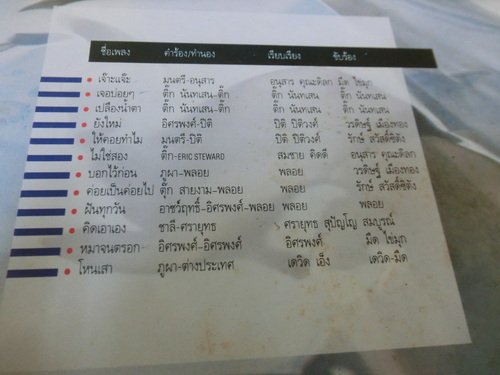 ชื่อเพลง คำร้อง/ทำนอง เรียบเรียง ขับร้อง
เจ๊าะแจ๊ะ มนตรี-อนุสาร อนุสาร คุณะดิลก มืด ไข่มุก
เจอบ่อยๆ ติ๊ก นันทเสน-ติ๊ก ติ๊ก นันทเสน ติ๊ก นันทเสน
เปลืองน้ำตา ติ๊ก นันทเสน-ติ๊ก ติ๊ก นันทเสน ติ๊ก นันทเสน
ยังใหม่ อิศรพงศ์-ปิติ ปิติ ปิติวงศ์ วรดิษฐ์ เมืองทอง
ให้คอยทำไม มนตรี-ปิติ ปิติ ปิติวงศ์ รักษ์ สวัสดิ์ชิตัง
ไม่ใช่สอง ติ๊ก-ERIC STEWARD สมชาย คิดดี อนุสาร คุณะดิลก
บอกไว้ก่อน ภูผา-พลอย พลอย วรดิษฐ์ เมืองทอง
ค่อยเป็นค่อยไป ตุ๊ก สายงาม-พลอย พลอย รักษ์ สวัสดิ์ชิตัง
ฝันทุกวัน อาชว์ฤทธิ์-อิศรพงศ์-พลอย พลอย พลอย
คิดเอาเอง ชาลี-ศรายุทธ ศรายุทธ สุปัญโญ สมบูรณ์
หมาจนตรอก อิศรพงศ์-อิศรพงศ์ อิศรพงศ์ มืด ไข่มุก
โหนเสา ภูผา-ต่างประเทศ เดวิด เอ็ง เดวิด-มืด